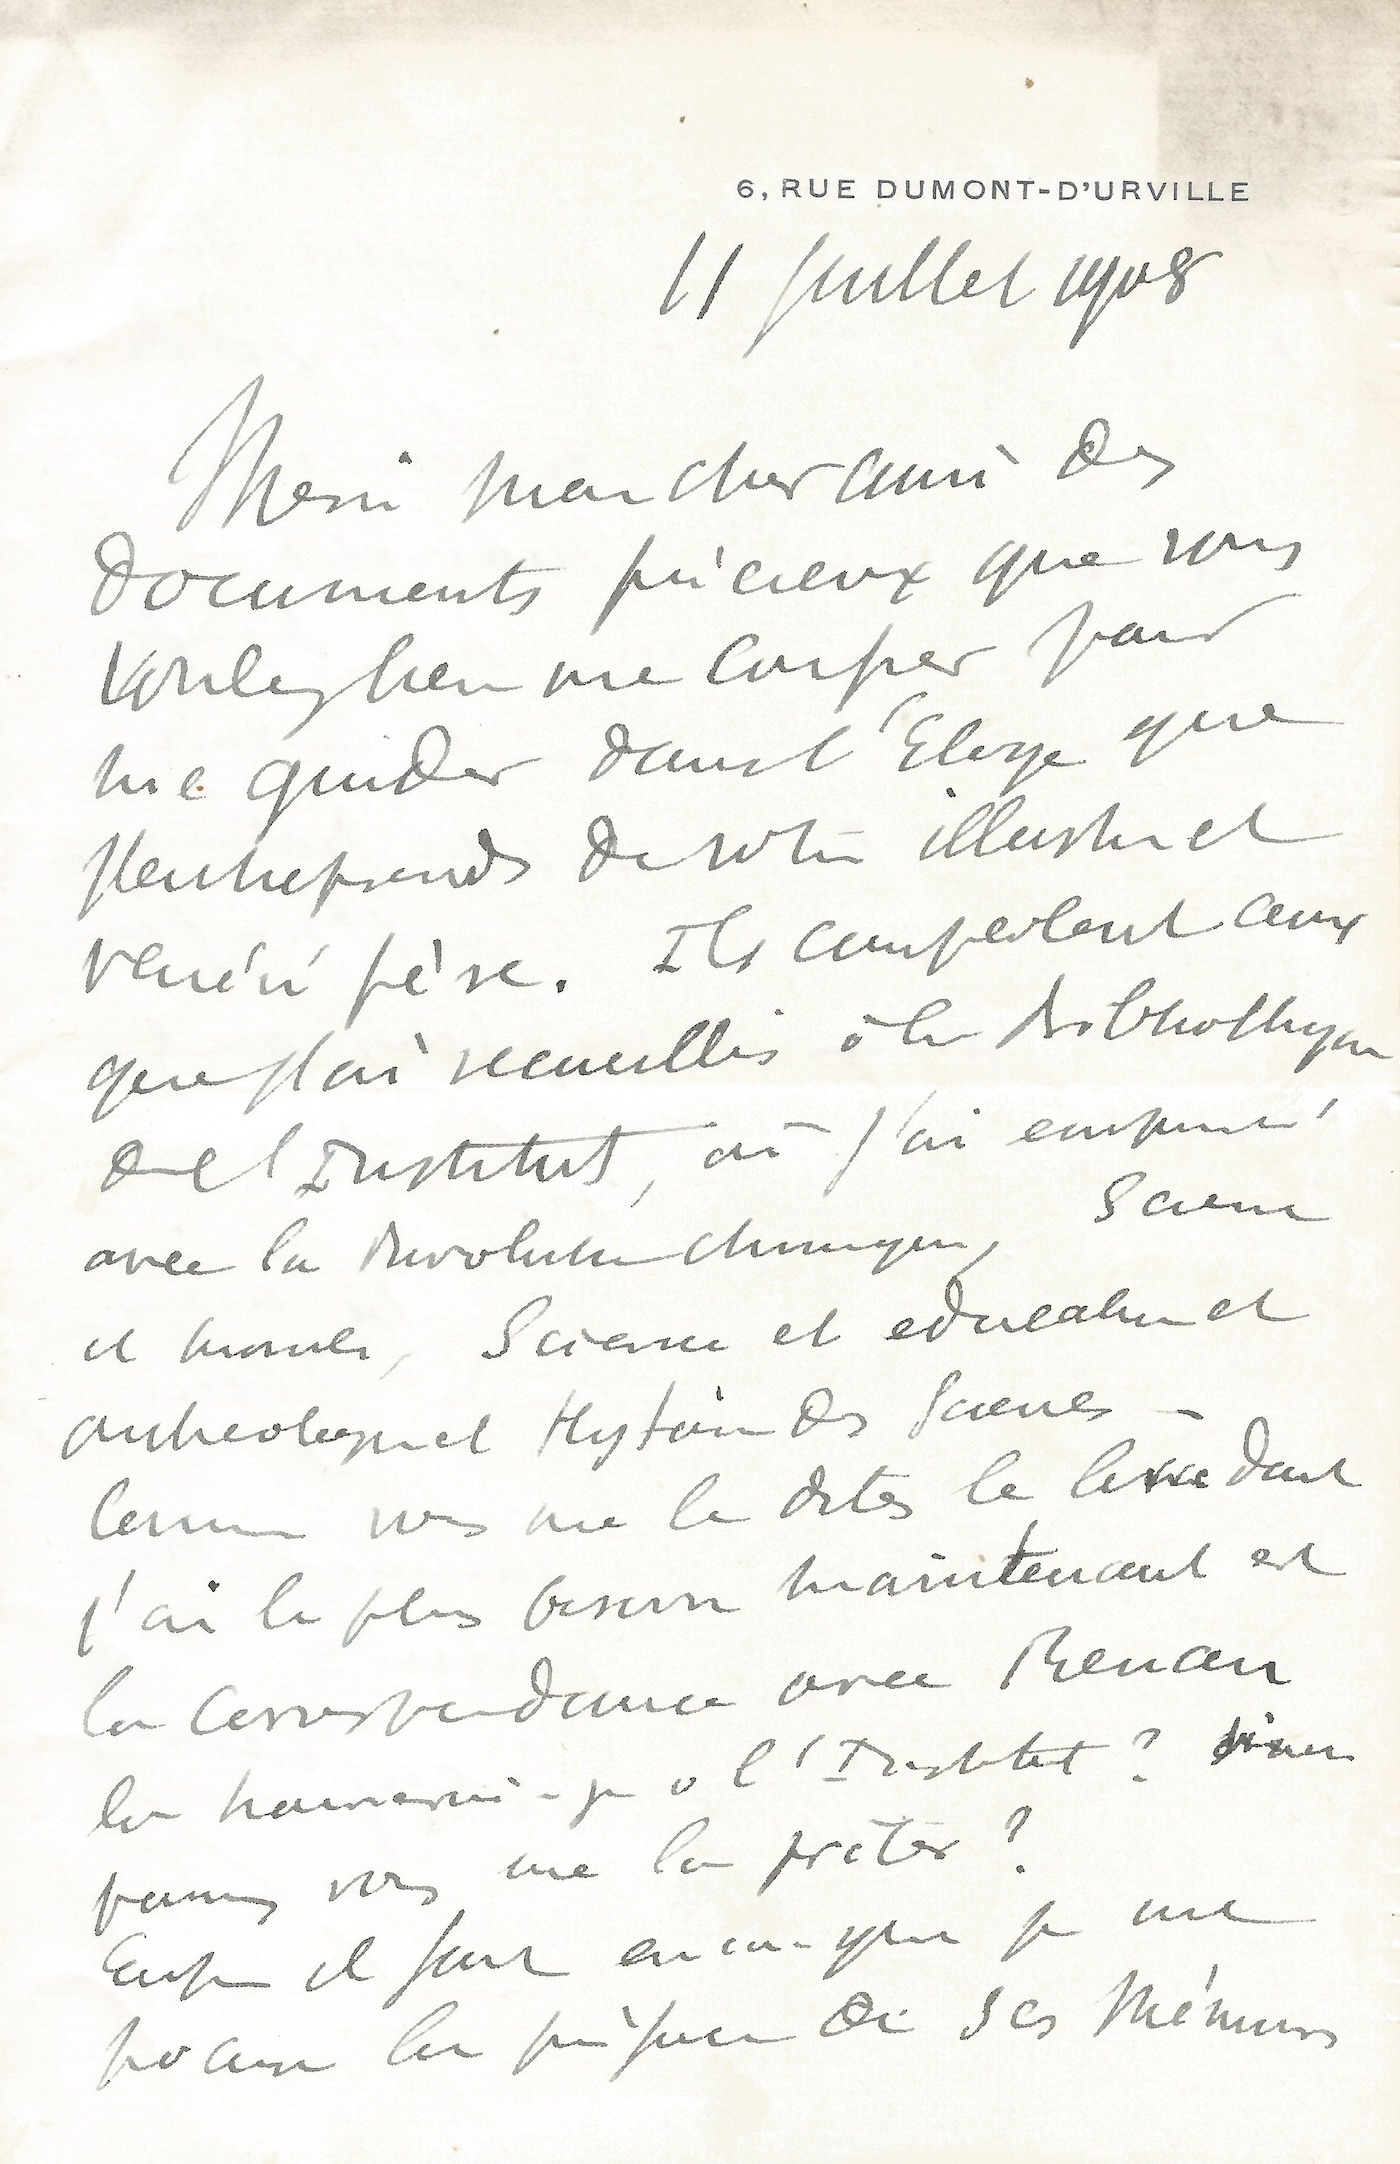 6, RUE DUMONT-D'URVILLE
11 Juillet 1908
Merci mon cher ami des
documents précieux que vous
voulez bien me confier pour
me guider dans l'Eloge que
j'entreprends de votre illustre et
vénéré père. Ils completent ceux
que j'ai recueillis à la Bibliothèque
de l'Institut, où j'ai emprunté
avec la Révolution chimique, Science
et morale, Science et education et
archeologie et Hystoire des Sciences –
Comme vous me le dites le livre dont
j'ai le plus besoin maintenant est
la Correspondance avec Renan
la trouverai-je à l'Institut? sinon
pouvez vous me la prêter?
Enfin il faut encore que je me
procure la préface de ses Mémoires